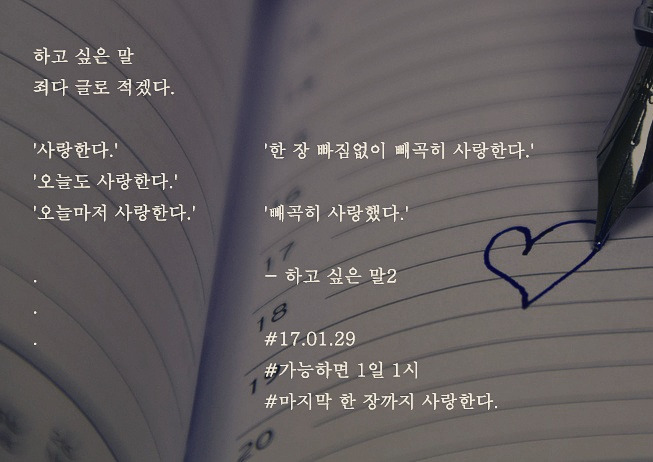 하고 싶은 말
죄다 글로 적겠다.
'사랑한다.'
'오늘도 사랑한다.'
'오늘마저 사랑한다.'
.
.
.
'한 장 빠짐없이 빼곡히 사랑한다.'
'빼곡히 사랑했다.'
- 하고 싶은 말2
#17.01.29
#가능하면 1일 1시
#마지막 한 장까지 사랑한다.
16
17
18
19
20